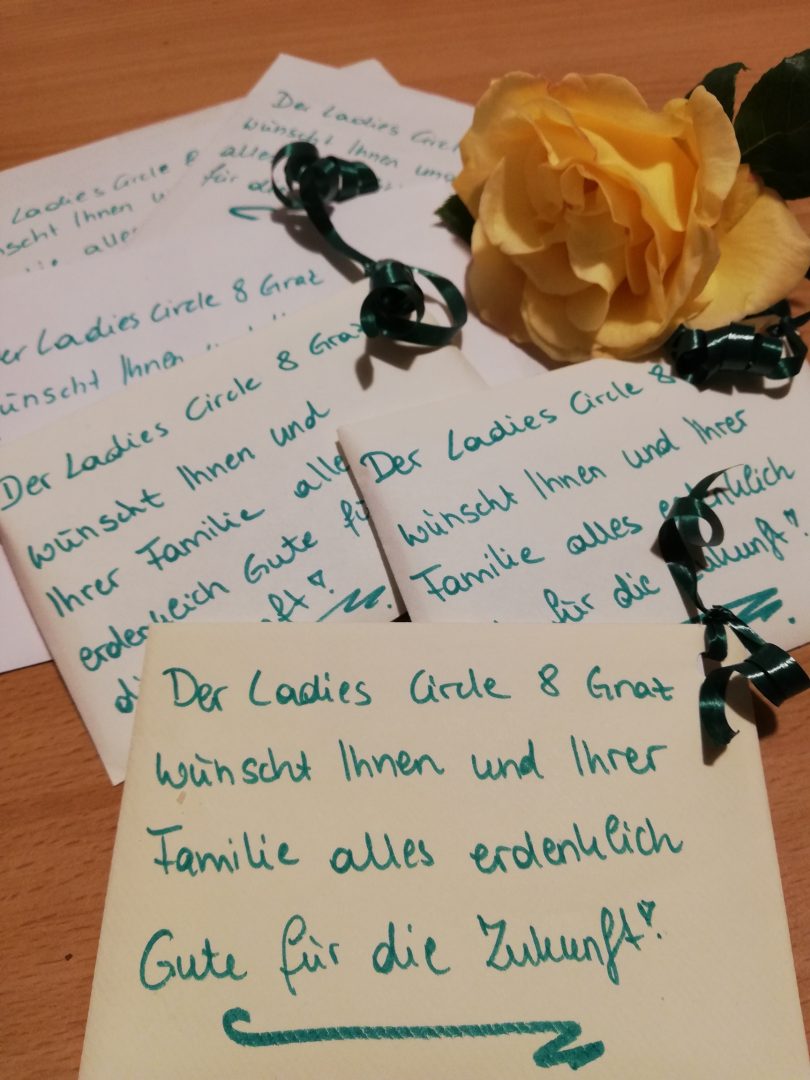 Der Ladies
wünscht Ihnen und
für
Ladies Circle 8
Ihnen
Ladies Circle 8 Graz
Ihnen
Der Ladies Circle 8
wünscht Ihnen und
Ihrer Familie
erdenklich Gute
Der Ladies Circle 8
wünscht Ihnen und Ihrer
Familie alles erdenklich
für die Zukunft!
Der Ladies Circle 8 Graz
wünscht Ihnen und Ihrer
Familie alles erdenklich
Gute für die Zukunft!